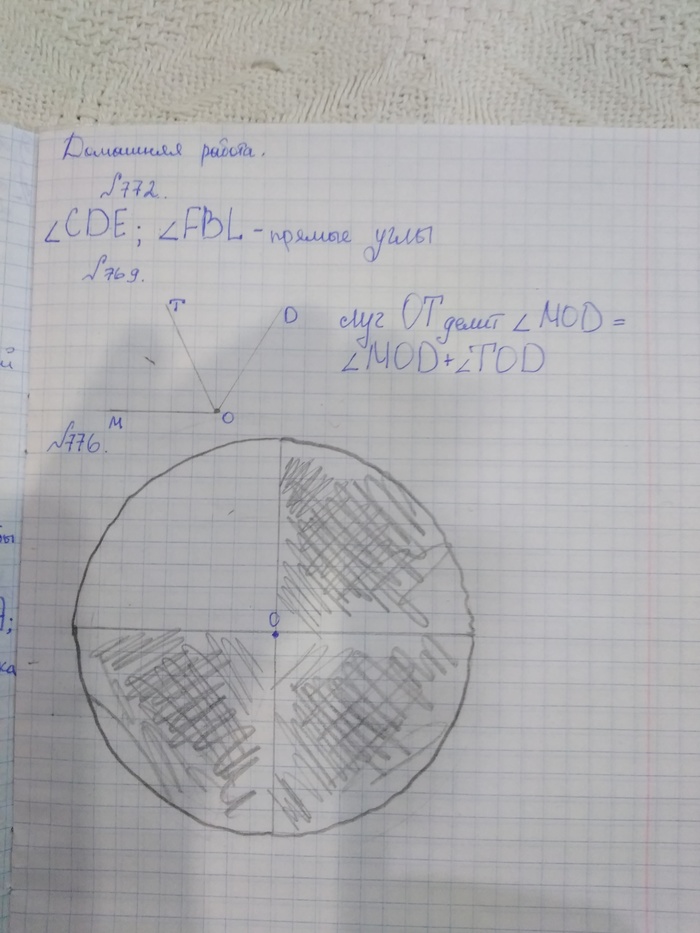 Домашняя работа.
№772.
∠CDE; ∠FBL - прямые углы
№769.
T
D
луг OT делит ∠MOD =
∠MOD+∠TOD
M
O
№776.
O
й
бы
;
ка